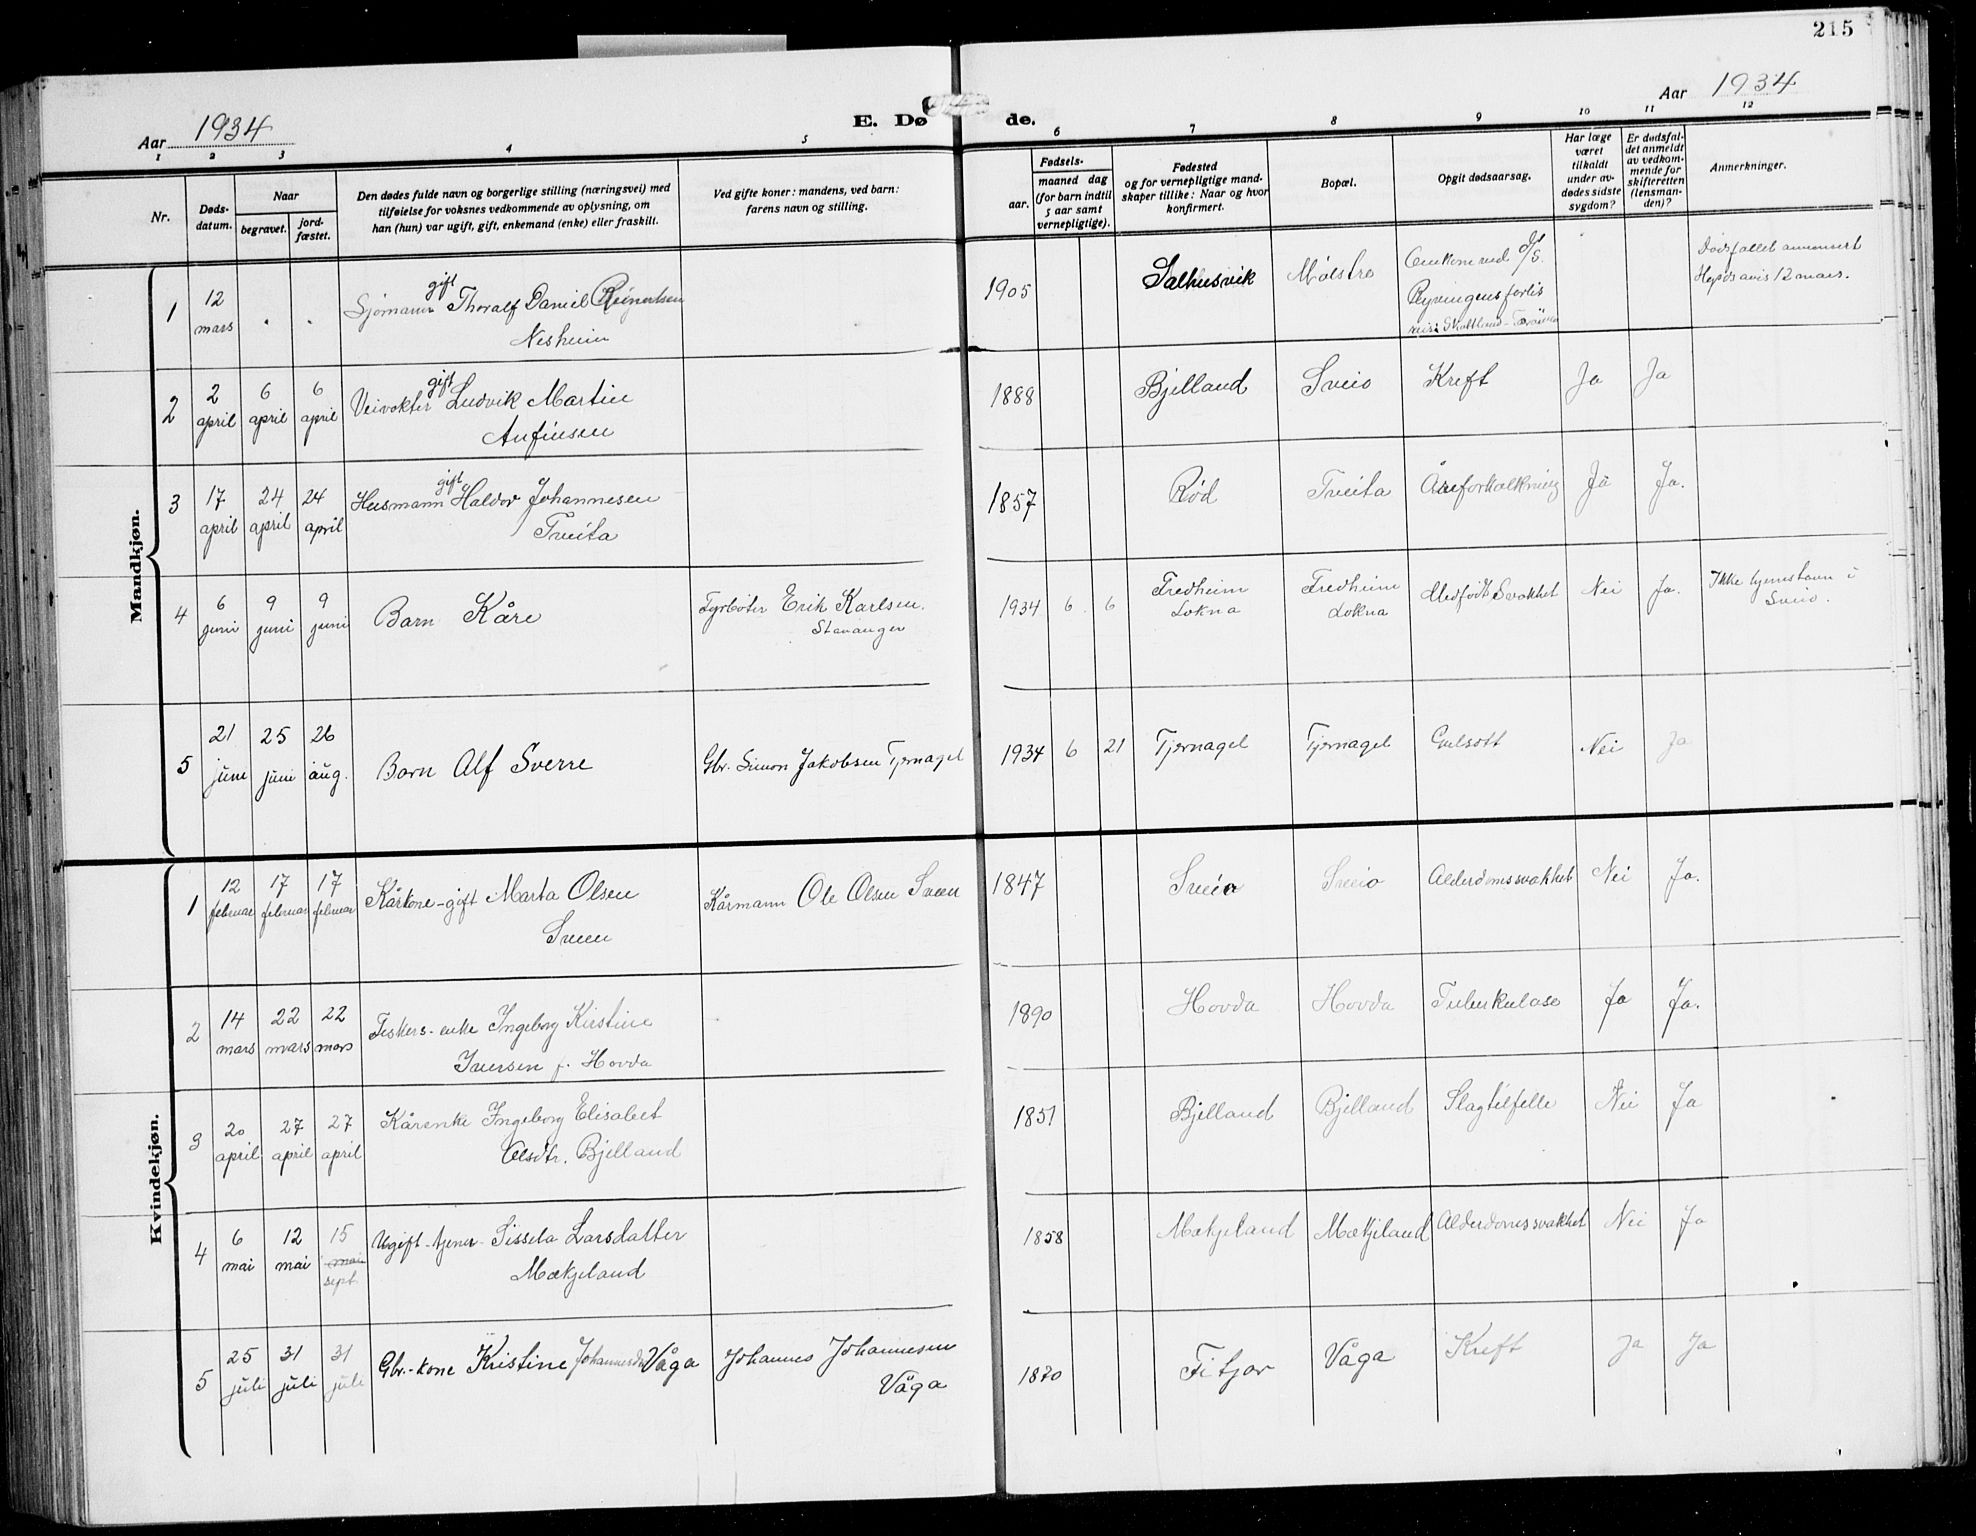 215
Aar 1934
E. Døde.
Aar 1934
1 2 3 4 5 6 7 8 9 10 11 12
Nr.
Døds-
datum.
Naar
begravet.
jord-
fæstet.
Den dødes fulde navn og borgerlige stilling (næringsvei) med
tilføielse for voksnes vedkommende av oplysning, om
han (hun) var ugift, gift, enkemand (enke) eller fraskilt.
Ved gifte koner: mandens, ved barn:
farens navn og stilling.
Fødsels-
aar.
maaned dag
(for barn indtil
5 aar samt
vernepligtige).
Fødested
og for vernepligtige mand-
skaper tillike: Naar og hvor
konfirmert.
Bopæl.
Opgit dødsaarsag.
Har læge
været
tilkaldt
under av-
dødes sidste
sygdom?
Er dødsfal-
det anmeldt
av vedkom-
mende for
skifteretten
(lensman-
den)?
Anmerkninger.
Mandkjøn.
1
12
mars
. .
gift
Sjømann Thoralf Daniel Reinertsen
Nesheim
1905
Salhusvik
Mølstre
Omkom ved D/S.
Ryvingens forlis
Dødsfallet annonsert
Hgsds avis 12 mars.
2
2 april
6 april
6 april
gift
Veivokter Ludvik Martin
Anfinsen
1888
Bjelland
Sveio
Kreft
Ja
Ja
3
17 april
24 april
24 april
gift
Husmann Haldor Johannesen
Tveita
1857
Rød
Tveita
Åreforkalkning
Ja
Ja.
4
6 juni
9 juni
9 juni
Barn Kåre
Fyrbøter Erik Karlsen.
Stavanger
1934 6. 6
Fredheim
Lokna
Fredheim
Lokna
Medfødt Svakhet
Nei
Ja.
Ikke hjemstavn i
Sveio.
5
21 juni
25 juni
26 aug.
Barn Alf Sverre
Gbr. Simon Jakobsen Tjernagel
1934 6 21
Tjernagel
Tjernagel
Gulsott
Nei
Ja
Kvindekjøn.
1
12 februar
17 februar
17 februar
Kårkone-gift Marta Olsen
Sveen
Kårmann Ole Olsen Sveen
1847
Sveio
Sveio
Alderdomssvakhet
Nei
Ja.
2
14 mars
22 mars
22 mars
Fiskers-enke Ingeborg Kirstine
Iversen f. Hovda
1890
Hovda
Hovda
Tuberkulose
Ja
Ja.
3
20 april
27 april
27 april
Kårenke Ingeborg Elisabet
Olsdtr. Bjelland
1851
Bjelland
Bjelland
Slagtilfelle
Nei
Ja
4
6 mai
12 mai
15 mai
sept
Ugift-tjener-Sissela Larsdatter
Mækjeland
1858
Mækjeland
Mækjeland
Alderdomssvakhet
Nei
Ja
5
25 juli
31 juli
31 juli
Gbr.-kone Kristine Johannesdr Våga
Johannes Johannesen
Våga
1870
Fitjar
Våga
Kreft
Ja
Ja